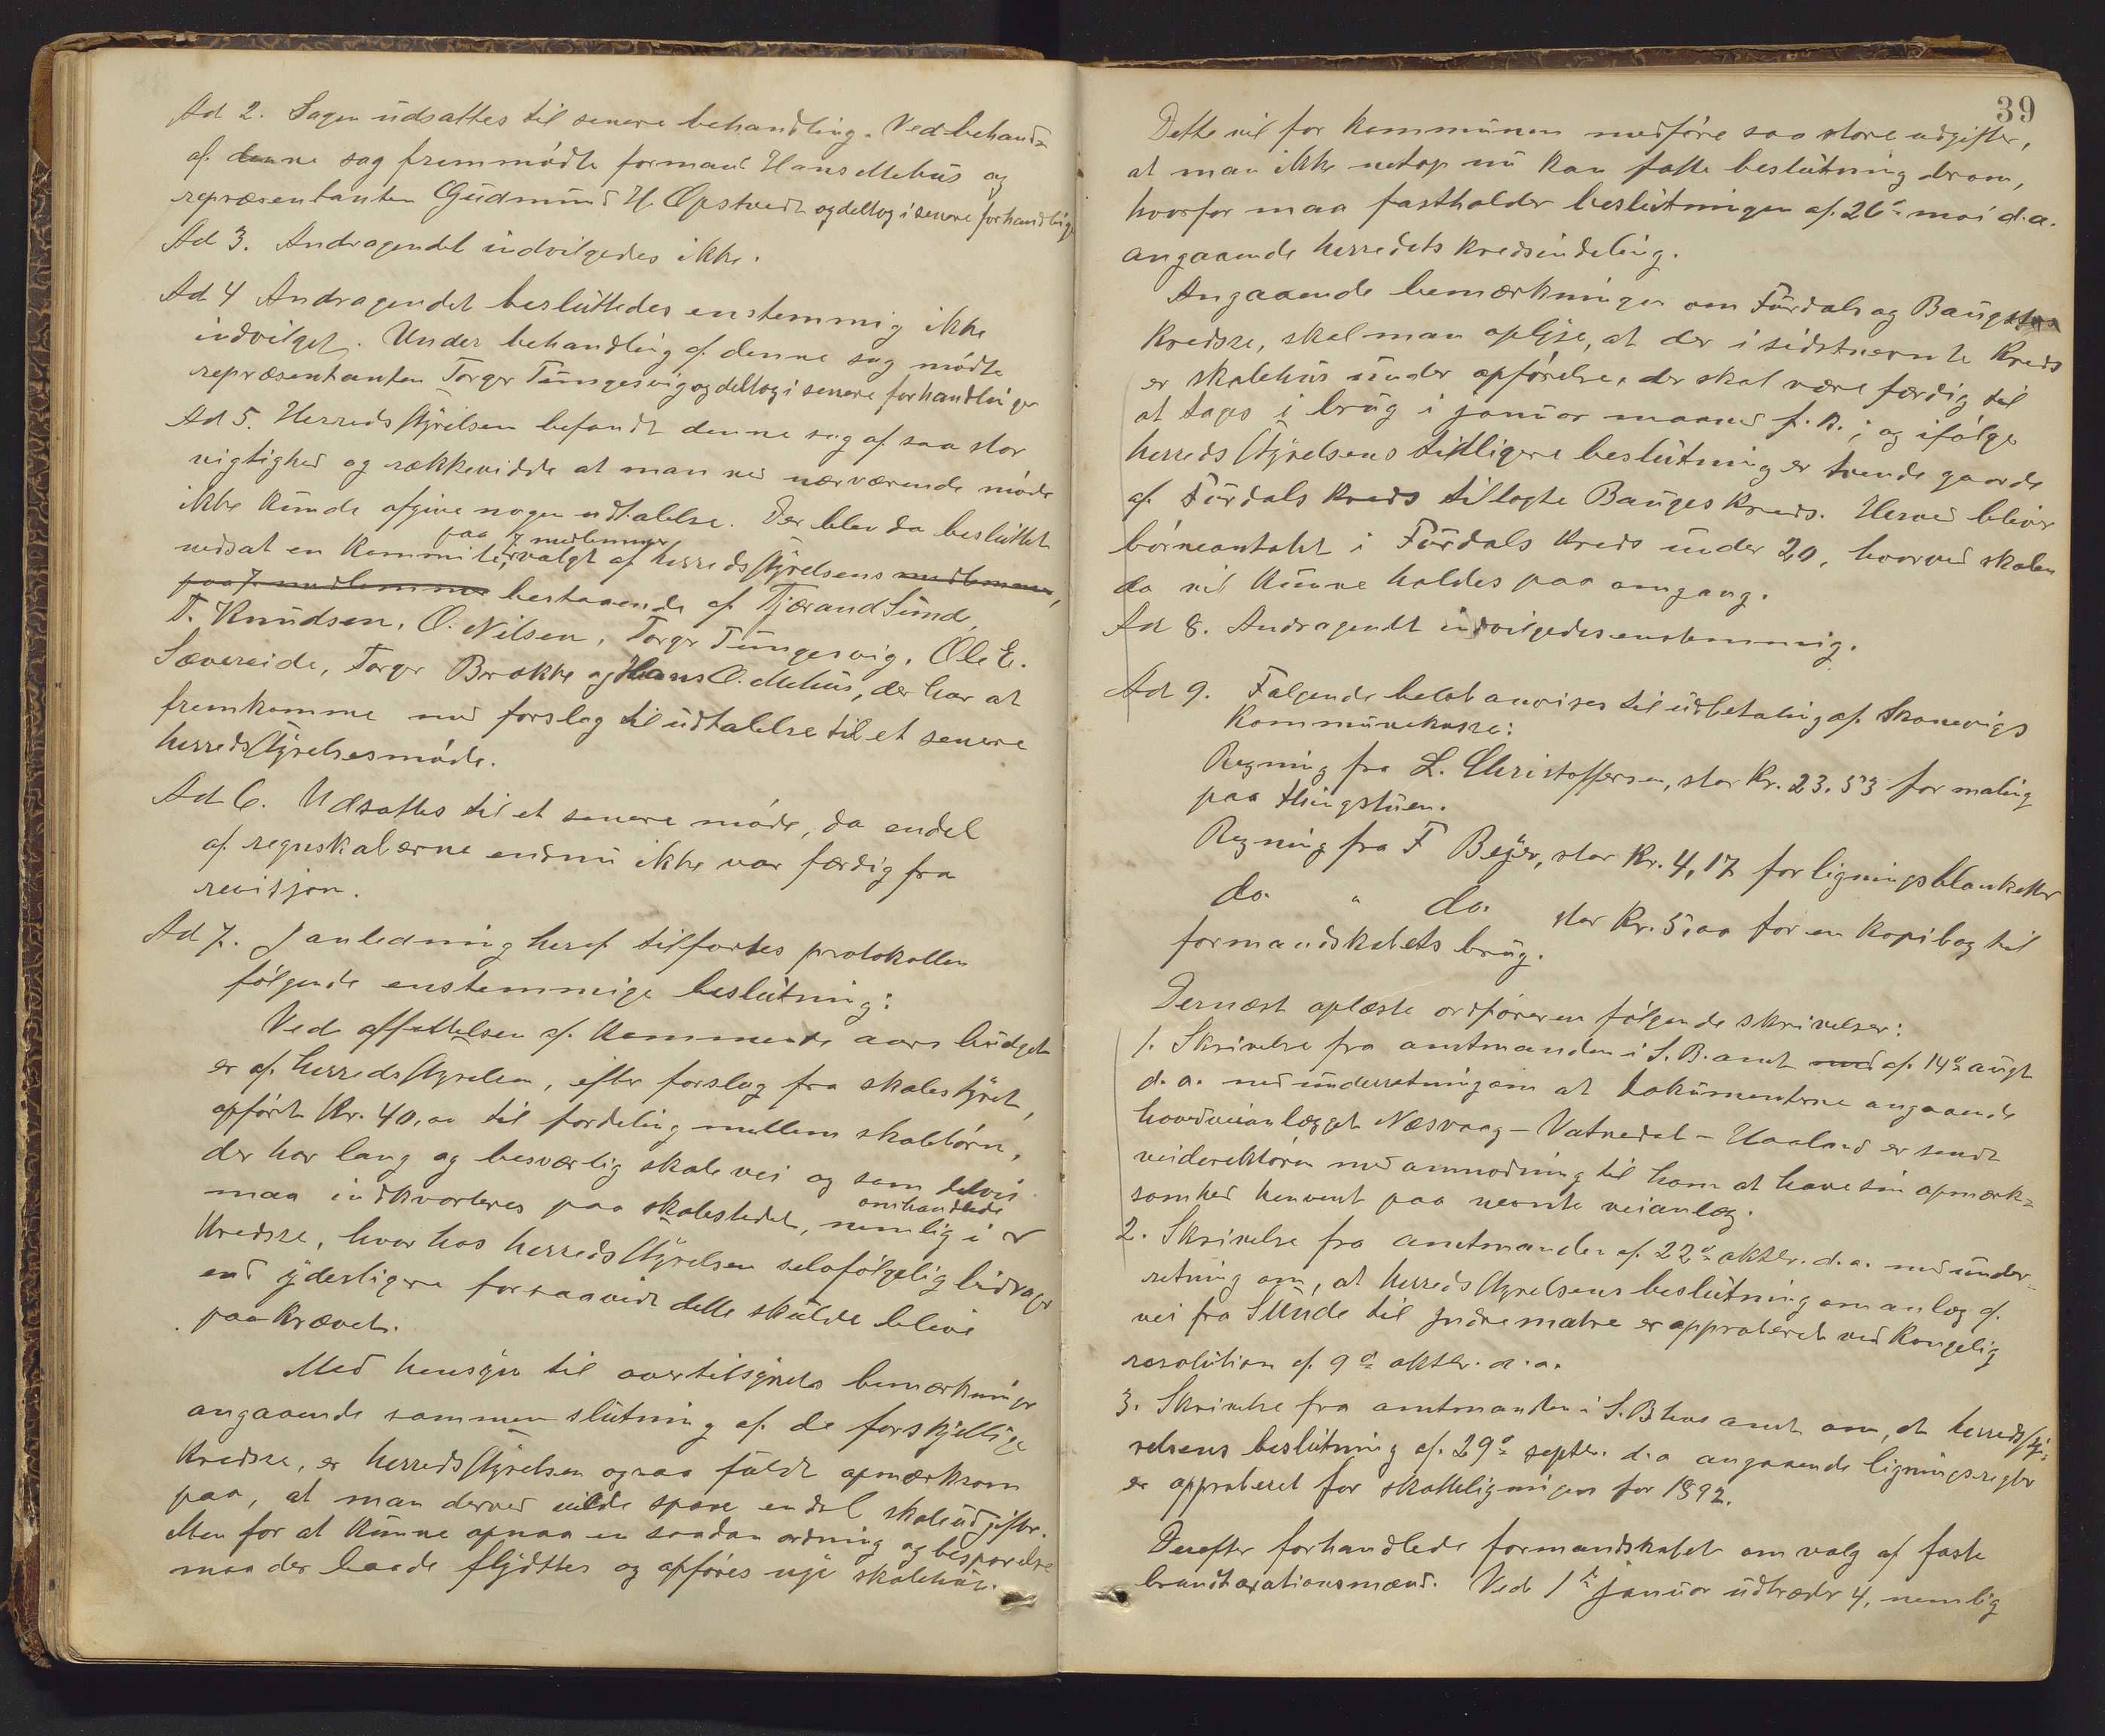 Ad 2. Sagen udsattes til senere behandling. Ved behand=
af denne sag fremmødte formand Hans Mehus og
repræsentanten Gudmund H. Opstvedt og deltog i senere forhandlinge
Ad 3. Andragendet indvilgedes ikke.
Ad 4 Andragendet besluttedes enstemmig ikke
indvilget. Under behandling af denne sag mødte
repræsentanten Torger Tungesvig og deltog i senere forhandlinger
Ad 5. Herredsstyrelsen befandt denne sag af saa stor
vigtighed og rækkevidde at man ved nærværende møde
ikke kunde afgive nogen udtalelse. Der blev da besluttet
paa 7 medlemmer
nedsat en kommite, valgt af herredsstyrelsens medlemmer,
paa 7 medlemmer bestaaende af Tjerand Sund,
T. Knudsen, O. Nilsen, Torger Tungesvig, Ole E.
Sævereide, Torger Brekke og Hans O. Mehus, der har at
fremkomme med forslag til udtalelse til et senere
herredsstyrelsesmøde.
Ad 6. Udsattes til et senere møde, da endel
af regnskaberne endnu ikke var færdig fra
revisjon.
Ad 7. I anledning heraf tilførtes protokollen
følgende enstemmige beslutning:
Ved affattelsen af kommende aars budget
er af herredsstyrelsen, efter forslag fra skolestyret,
opført Kr. 40,00 til fordeling mellem skolebørn,
der har lang og besværlig skolevei og som delvis
omhandlede
maa indkvarteres paa skolestedet, nemlig i
kredse, hvorhos herredsstyrelsen selvfølgelig bidrager
end yderligere forsaavidt dette skulde blive
paakrævet.
Med hensyn til overtilsynets bemærkninger
angaaende sammenslutning af de forskjellige
kredse, er herredsstyrelsen ogsaa fuldt opmærksom
paa, at man derved vilde spare endel skoleudgifter.
Men for at kunne opnaa en saadan ordning og besparelse
maa der baade flyttes og opføres nye skolehuse.
39
Dette vil for kommunen medføre saa store udgifter,
at man ikke netop nu kan fatte beslutning derom,
hvorfor man fastholder beslutningen af 26de mai d.a.
angaaende herredets kredsindeling.
Angaaende bemærkningen om Førdals og Bauges
kredse, skal man oplyse, at der i sidstnevnte kreds
er skolehus under opførelse, der skal være færdig til
at tages i brug i januar maaned f.k.; og ifølge
herredsstyrelsens tidligere beslutning er tvende gaarde
af Førdals kreds tillagte Bauges kreds. Herved bliver
børneantalet i Førdals kreds under 20, hvorved skolen
da vil kunne holdes paa omgang.
Ad 8. Andragendet indvilgedes enstemmig.
Ad 9. Følgende beløb anvises til udbetaling af Skonevigs
kommunekasse:
Regning fra L. Christoffersen, stor Kr. 23.53 for maling
paa thingstuen.
Regning fra F Beyer, stor Kr. 4,17 for ligningsblanketter
do. " do. stor Kr. 5,00 for en kopibog til
formandskabets brug.
Dernæst oplæste ordføreren følgende skrivelser:
1. Skrivelse fra amtmanden i S.B. amt med af 14de augt
d.a. med underretning om at dokumenterne angaaende
hovedveianlægget Næsvaag – Vatnedal – Haaland er sendt
veidirektøren med anmodning til ham at have sin opmærk=
somhed henvent paa nevnte veianlæg.
2. Skrivelse fra amtmanden af 22de oktbr. d.a. med under=
retning om, at herredsstyrelsens beslutning om anlæg af
vei fra Sunde til Indre matre er approberet ved kongelig
resolution af 9de oktbr. d.a.
3. Skrivelse fra amtmanden i S.B.hus amt om, at herredssty=
relsens beslutning af 29de septbr. d.a angaaende ligningsregler
er approberet for skatteligningen for 1892.
Derefter forhandlede formandskabet om valg af faste
brandtaxationsmænd. Ved 1ste januar udtræder 4, nemlig